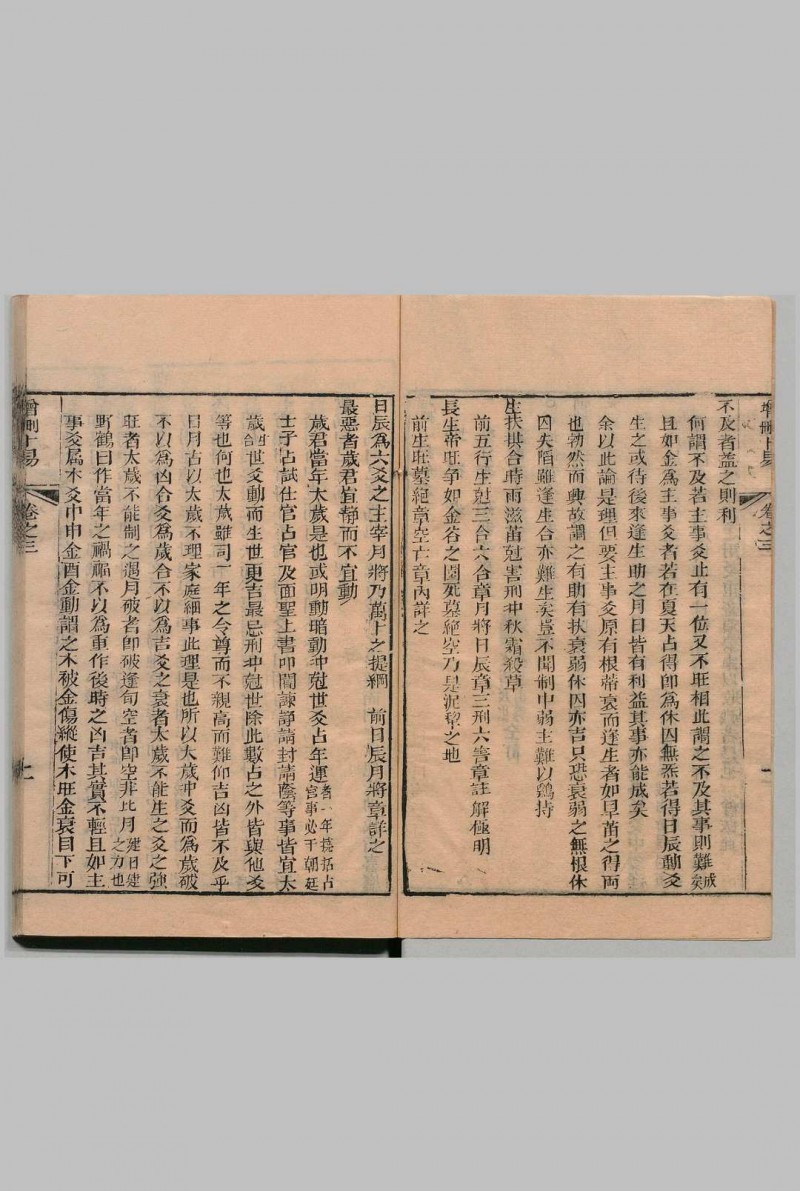 增刪卜易
卷之三
不及者益之則利
何謂不及若主事爻止有一位又不旺相此謂之不及其事則難成矣
且如金爲主事爻者若在夏天占得卽爲休囚無炁若得日辰動爻
生之或待後來逢生助之月日皆有利益其事亦能成矣
余以此論是理但要主事爻原有根蒂衰而逢生者如旱苗之得雨
也勃然而興故謂之有助有扶衰弱休囚亦吉只恐衰弱之無根休
囚失陷雖逢生合亦難生矣豈不聞制中弱主難以鷄持
生扶拱合時雨滋苗尅害刑冲秋霜殺草
前五行生尅三合六合章月將日辰章三刑六害章註解極明
長生帝旺爭如金谷之園死墓絕空乃是泥犂之地
前生旺墓絕章空亡章內詳之
日辰爲六爻之主宰月將乃萬卜之提綱 前日辰月將章詳之
最惡者歲君宜靜而不宜動
歲君當年太歲是也或明動暗動冲尅世爻占年運者一年擾拓占宮事必干朝廷
士子占試仕官占官及面聖上書叩閽諫諍請封請蔭等事皆宜太
歲合世爻動而生世更吉最忌刑冲尅世除此數占之外皆與他爻
等也何也太歲雖司一年之令尊而不親高而難仰吉凶皆不及乎
日月古以太歲不理家庭細事此理是也所以太歲冲爻而爲歲破
不以爲凶合爻爲歲合不以爲吉爻之衰者太歲不能生之爻之強
旺者太歲不能制之遇月破者卽破逢旬空者卽空非比月建日建之力也
野鶴曰作當年之禍福不以爲重作後時之凶吉其實不輕且如主
事爻屬木爻中申金酉金動謂之木被金傷縱使木旺金衰目下可
增刪卜易
卷之三